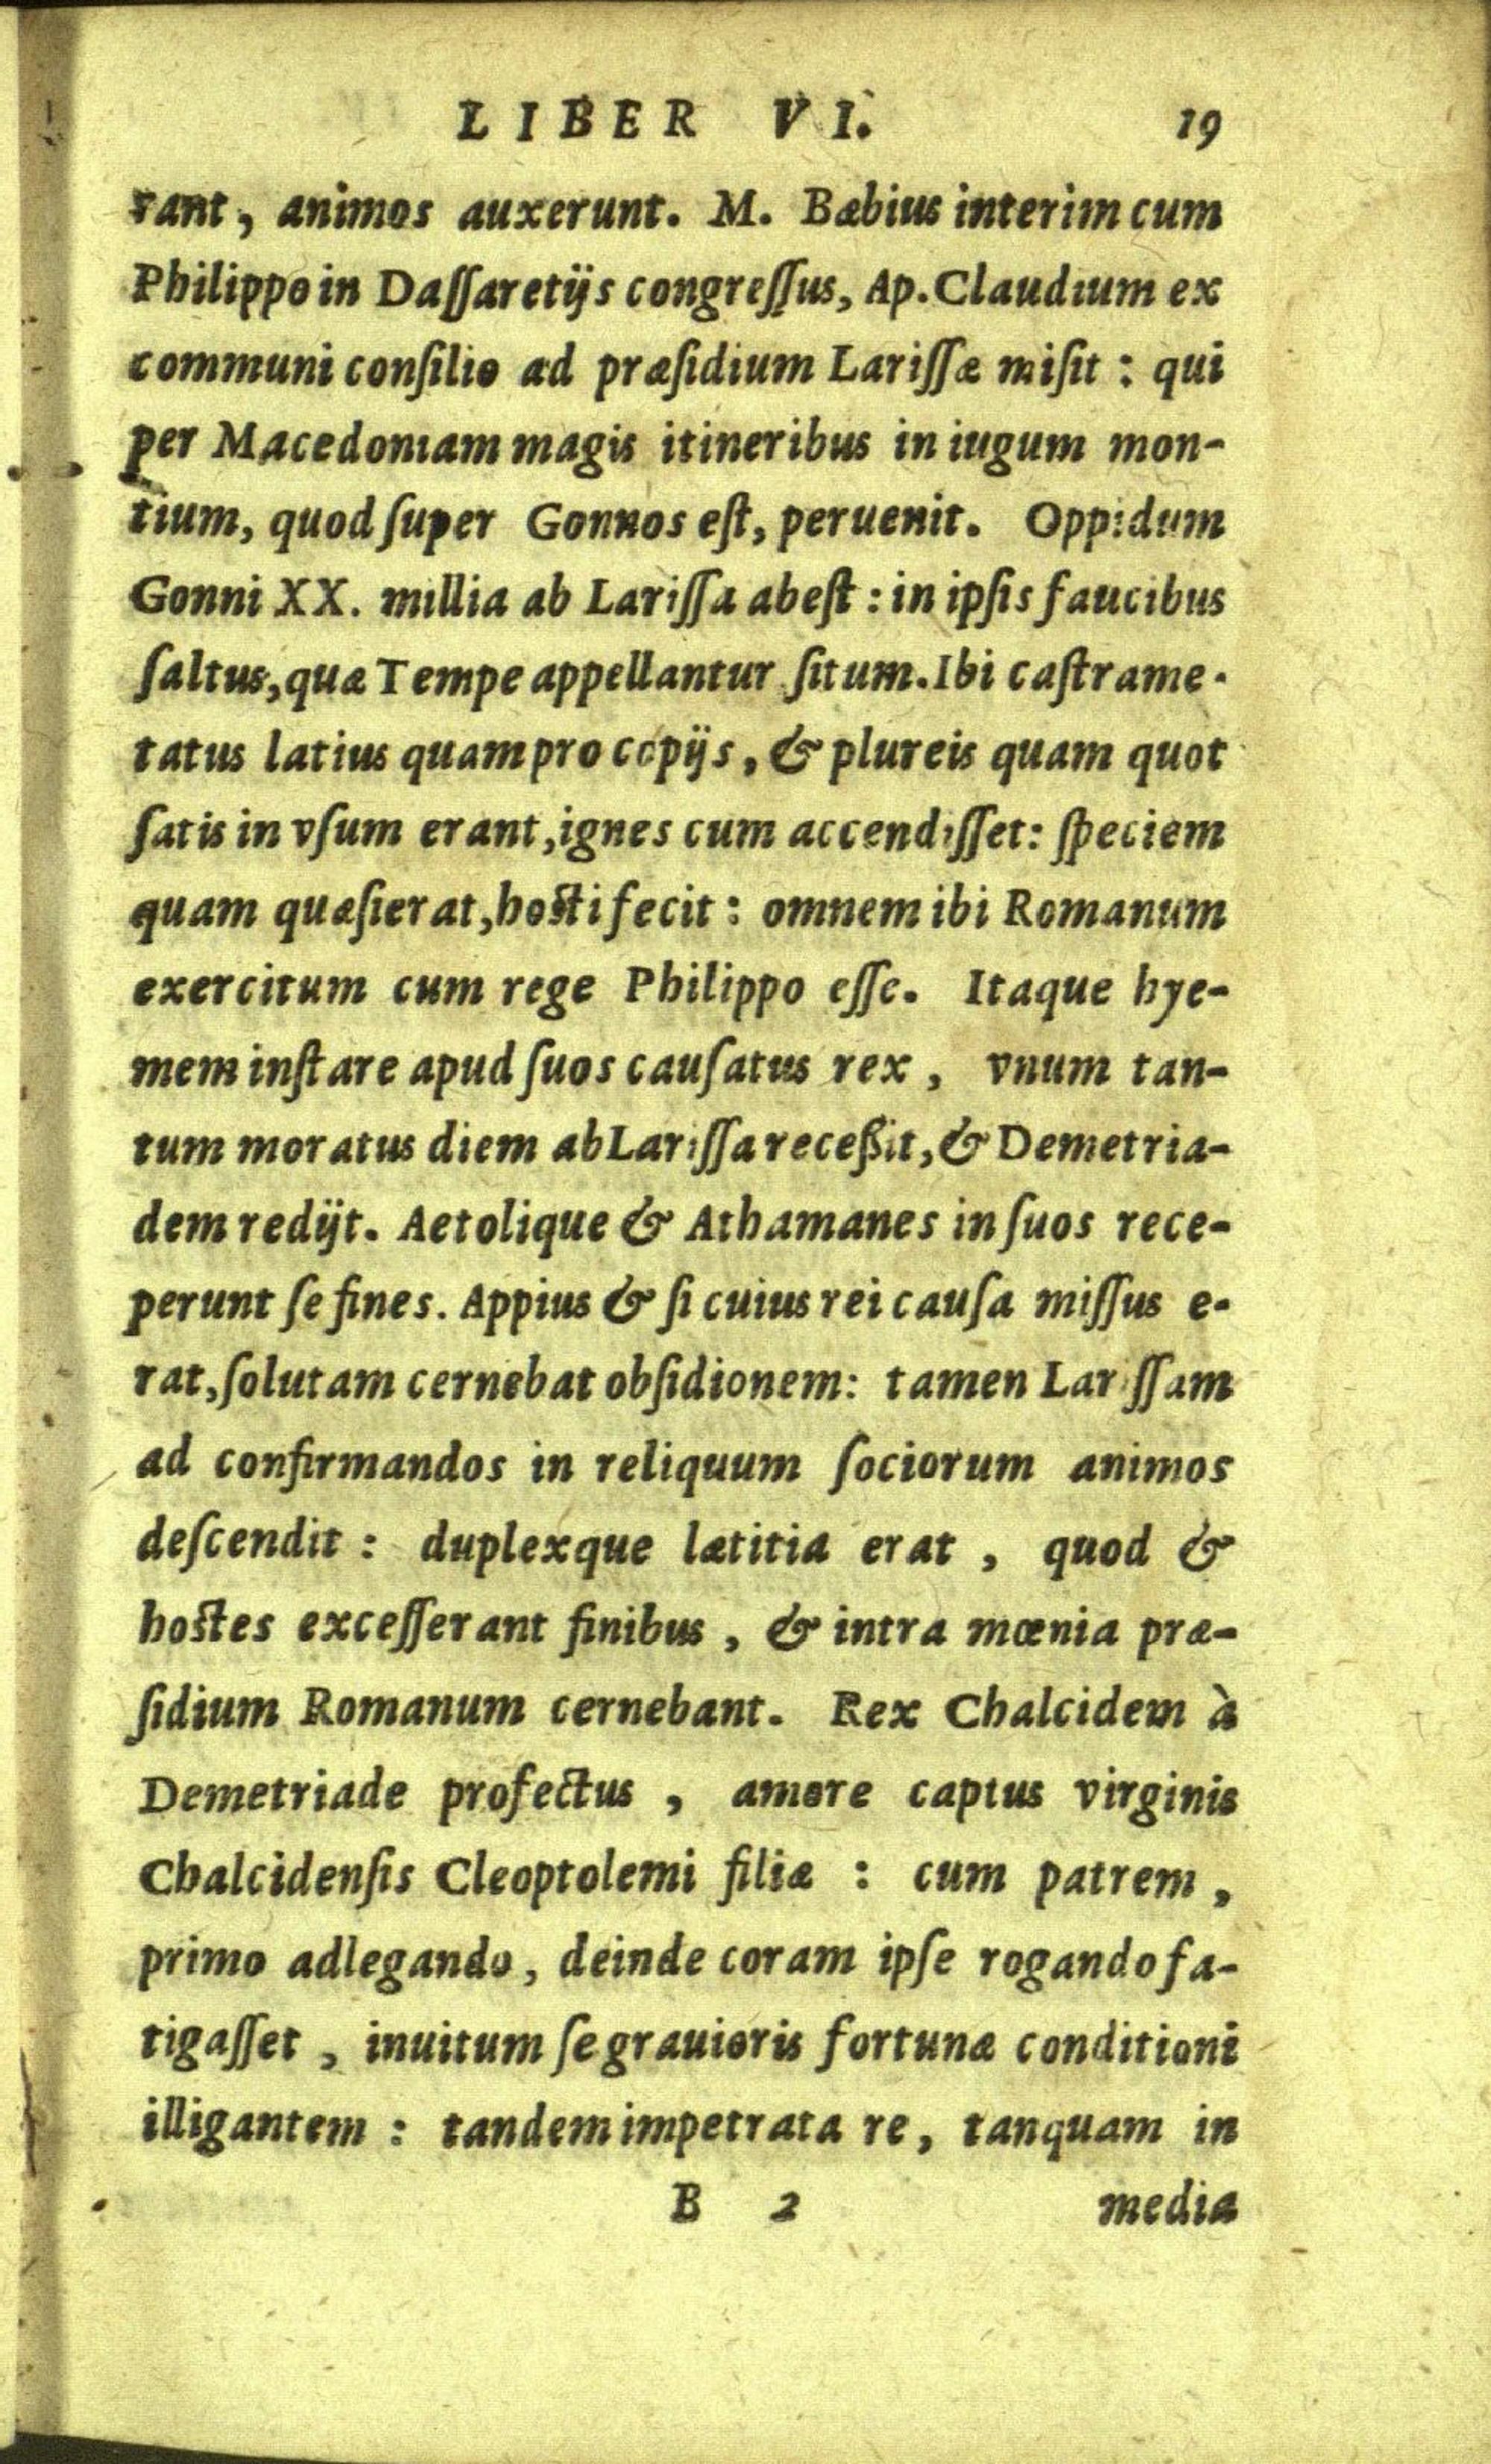 LIBER VI. 19
rant, animos auxerunt. M. Bæbius interim cum
Philippo in Daſſaretijs congreſſus, Ap. Claudium ex
communi conſilio ad præſidium Lariſſæ miſit : qui
per Macedoniam magis itineribus in iugum mon-
tium, quod ſuper Gonnos eſt, peruenit. Oppidum
Gonni XX. millia ab Lariſſa abeſt : in ipſis faucibus
ſaltus, quæ Tempe appellantur ſitum. Ibi caſtrame-
tatus latius quam pro copijs, & plureis quam quot
ſatis in vſum erant, ignes cum accendiſſet: ſpeciem
quam quæſierat, hoſti fecit : omnem ibi Romanum
exercitum cum rege Philippo eſſe. Itaque hye-
mem inſtare apud ſuos cauſatus rex, vnum tan-
tum moratus diem ab Lariſſa receßit, & Demetria-
dem redijt. Aetolique & Athamanes in ſuos rece-
perunt ſe fines. Appius & ſi cuius rei cauſa miſſus e-
rat, ſolutam cernebat obſidionem: tamen Lar ſſam
ad confirmandos in reliquum ſociorum animos
deſcendit : duplexque lætitia erat, quod &
hoſtes exceſſerant finibus, & intra mœnia præ-
ſidium Romanum cernebant. Rex Chalcidem à
Demetriade profectus, amore captus virginis
Chalcidenſis Cleoptolemi filiæ : cum patrem,
primo adlegando, deinde coram ipſe rogando fa-
tigaſſet, inuitum ſe grauioris fortunæ conditioni
illigantem : tandem impetrata re, tanquam in
B 2 media